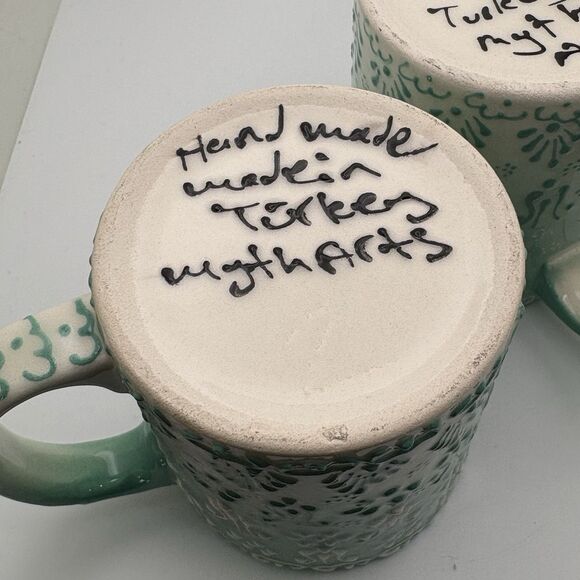 Hand made
made in
Türkey
myth Arts
Turke
myt